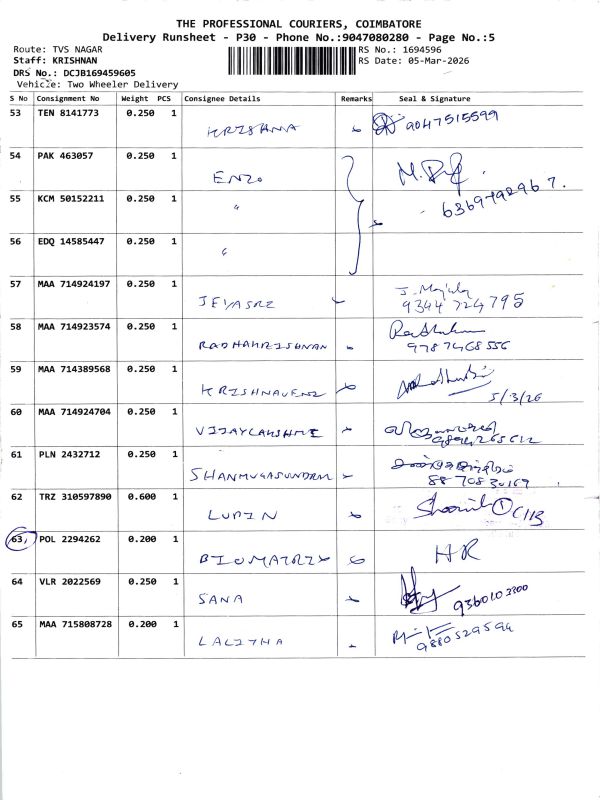 THE PROFESSIONAL COURIERS, COIMBATORE
Delivery Runsheet - P30 - Phone No.:9047080280 - Page No.:5
Route: TVS NAGAR
RS No.: 1694596
Staff: KRISHNAN
RS Date: 05-Mar-2026
DRS No.: DCJB169459605
Vehicle: Two Wheeler Delivery
S No Consignment No Weight PCS Consignee Details Remarks Seal & Signature
53 TEN 8141773 0.250 1 KRISHANA 9047515599
54 PAK 463057 0.250 1 ENZO
55 KCM 50152211 0.250 1 " 6369792967.
56 EDQ 14585447 0.250 1 "
57 MAA 714924197 0.250 1 JEYASRE 9344 724795
58 MAA 714923574 0.250 1 RADHAKRISHNAN 9787468556
59 MAA 714389568 0.250 1 KRISHNAVENI 5/3/26
60 MAA 714924704 0.250 1 VIJAYLAKSHMI
61 PLN 2432712 0.250 1 SHANMUGASUNDRAM 88708 30169
62 TRZ 310597890 0.600 1 LUPIN
63 POL 2294262 0.200 1 BIOMATRIX HR
64 VLR 2022569 0.250 1 SANA 9360102300
65 MAA 715808728 0.200 1 LALITHA 9880529594